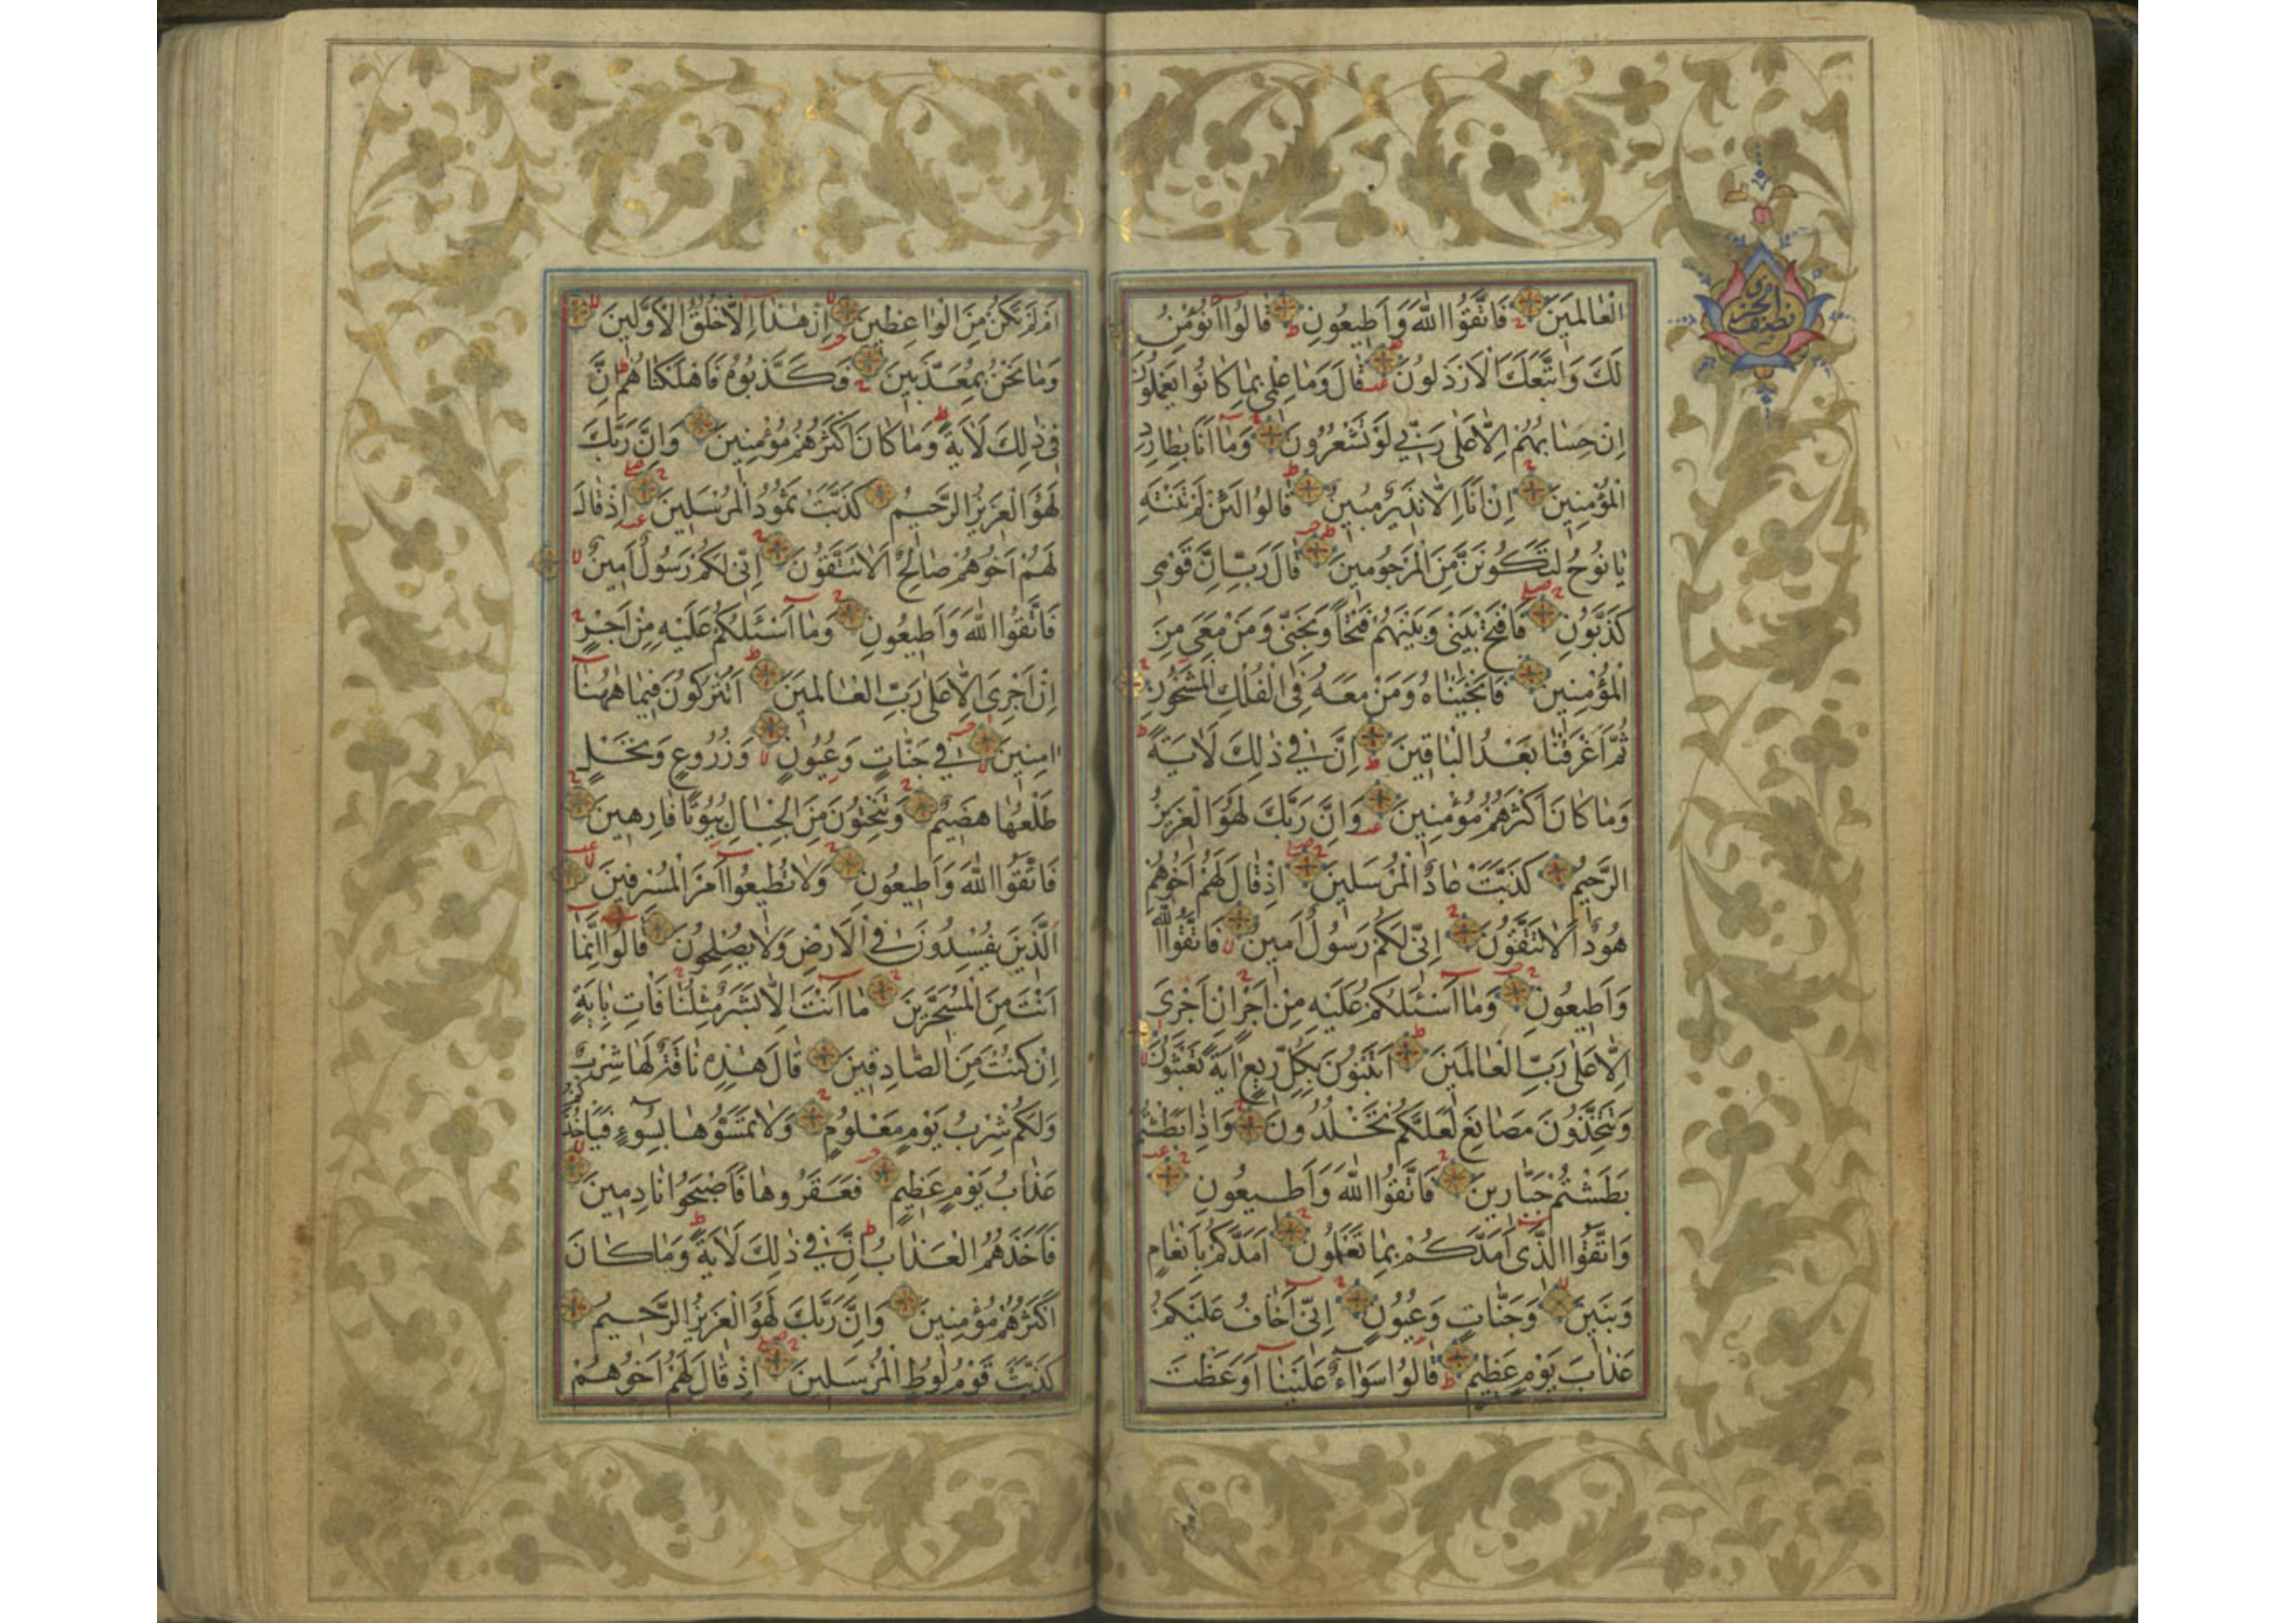 الْعَالَمِينَ فَاتَّقُوا اللّٰهَ وَاَطِيعُونِ قَالُوا اَنُؤْمِنُ
لَكَ وَاتَّبَعَكَ الْاَرْذَلُونَ قَالَ وَمَا عِلْمِي بِمَا كَانُوا يَعْمَلُونَ
اِنْ حِسَابُهُمْ اِلَّا عَلٰى رَبِّي لَوْ تَشْعُرُونَ وَمَا اَنَا بِطَارِدِ
الْمُؤْمِنِينَ اِنْ اَنَا اِلَّا نَذِيرٌ مُبِينٌ قَالُوا لَئِنْ لَمْ تَنْتَهِ
يَا نُوحُ لَتَكُونَنَّ مِنَ الْمَرْجُومِينَ قَالَ رَبِّ اِنَّ قَوْمِي
كَذَّبُونِ فَافْتَحْ بَيْنِي وَبَيْنَهُمْ فَتْحًا وَنَجِّنِي وَمَنْ مَعِيَ مِنَ
الْمُؤْمِنِينَ فَاَنْجَيْنَاهُ وَمَنْ مَعَهُ فِي الْفُلْكِ الْمَشْحُونِ
ثُمَّ اَغْرَقْنَا بَعْدُ الْبَاقِينَ اِنَّ فِي ذٰلِكَ لَاٰيَةً
وَمَا كَانَ اَكْثَرُهُمْ مُؤْمِنِينَ وَاِنَّ رَبَّكَ لَهُوَ الْعَزِيزُ
الرَّحِيمُ كَذَّبَتْ عَادٌ الْمُرْسَلِينَ اِذْ قَالَ لَهُمْ اَخُوهُمْ
هُودٌ اَلَا تَتَّقُونَ اِنِّي لَكُمْ رَسُولٌ اَمِينٌ فَاتَّقُوا اللّٰهَ
وَاَطِيعُونِ وَمَا اَسْئَلُكُمْ عَلَيْهِ مِنْ اَجْرٍ اِنْ اَجْرِيَ
اِلَّا عَلٰى رَبِّ الْعَالَمِينَ اَتَبْنُونَ بِكُلِّ رِيعٍ اٰيَةً تَعْبَثُونَ
وَتَتَّخِذُونَ مَصَانِعَ لَعَلَّكُمْ تَخْلُدُونَ وَاِذَا بَطَشْتُمْ
بَطَشْتُمْ جَبَّارِينَ فَاتَّقُوا اللّٰهَ وَاَطِيعُونِ
وَاتَّقُوا الَّذِي اَمَدَّكُمْ بِمَا تَعْلَمُونَ اَمَدَّكُمْ بِاَنْعَامٍ
وَبَنِينَ وَجَنَّاتٍ وَعُيُونٍ اِنِّي اَخَافُ عَلَيْكُمْ
عَذَابَ يَوْمٍ عَظِيمٍ قَالُوا سَوَاءٌ عَلَيْنَا اَوَعَظْتَ
نصف الحزب
اَمْ لَمْ تَكُنْ مِنَ الْوَاعِظِينَ اِنْ هٰذَا اِلَّا خُلُقُ الْاَوَّلِينَ
وَمَا نَحْنُ بِمُعَذَّبِينَ فَكَذَّبُوهُ فَاَهْلَكْنَاهُمْ اِنَّ
فِي ذٰلِكَ لَاٰيَةً وَمَا كَانَ اَكْثَرُهُمْ مُؤْمِنِينَ وَاِنَّ رَبَّكَ
لَهُوَ الْعَزِيزُ الرَّحِيمُ كَذَّبَتْ ثَمُودُ الْمُرْسَلِينَ اِذْ قَالَ
لَهُمْ اَخُوهُمْ صَالِحٌ اَلَا تَتَّقُونَ اِنِّي لَكُمْ رَسُولٌ اَمِينٌ
فَاتَّقُوا اللّٰهَ وَاَطِيعُونِ وَمَا اَسْئَلُكُمْ عَلَيْهِ مِنْ اَجْرٍ
اِنْ اَجْرِيَ اِلَّا عَلٰى رَبِّ الْعَالَمِينَ اَتُتْرَكُونَ فِيمَا هٰهُنَا
اٰمِنِينَ فِي جَنَّاتٍ وَعُيُونٍ وَزُرُوعٍ وَنَخْلٍ
طَلْعُهَا هَضِيمٌ وَتَنْحِتُونَ مِنَ الْجِبَالِ بُيُوتًا فَارِهِينَ
فَاتَّقُوا اللّٰهَ وَاَطِيعُونِ وَلَا تُطِيعُوا اَمْرَ الْمُسْرِفِينَ
اَلَّذِينَ يُفْسِدُونَ فِي الْاَرْضِ وَلَا يُصْلِحُونَ قَالُوا اِنَّمَا
اَنْتَ مِنَ الْمُسَحَّرِينَ مَا اَنْتَ اِلَّا بَشَرٌ مِثْلُنَا فَاْتِ بِاٰيَةٍ
اِنْ كُنْتَ مِنَ الصَّادِقِينَ قَالَ هٰذِهِ نَاقَةٌ لَهَا شِرْبٌ
وَلَكُمْ شِرْبُ يَوْمٍ مَعْلُومٍ وَلَا تَمَسُّوهَا بِسُوءٍ فَيَاْخُذَكُمْ
عَذَابُ يَوْمٍ عَظِيمٍ فَعَقَرُوهَا فَاَصْبَحُوا نَادِمِينَ
فَاَخَذَهُمُ الْعَذَابُ اِنَّ فِي ذٰلِكَ لَاٰيَةً وَمَا كَانَ
اَكْثَرُهُمْ مُؤْمِنِينَ وَاِنَّ رَبَّكَ لَهُوَ الْعَزِيزُ الرَّحِيمُ
كَذَّبَتْ قَوْمُ لُوطٍ الْمُرْسَلِينَ اِذْ قَالَ لَهُمْ اَخُوهُمْ